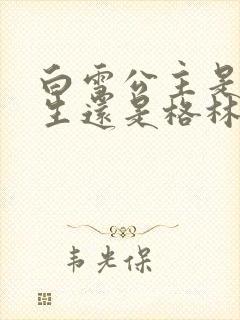 白雪公主是
生還是格林
韦光保